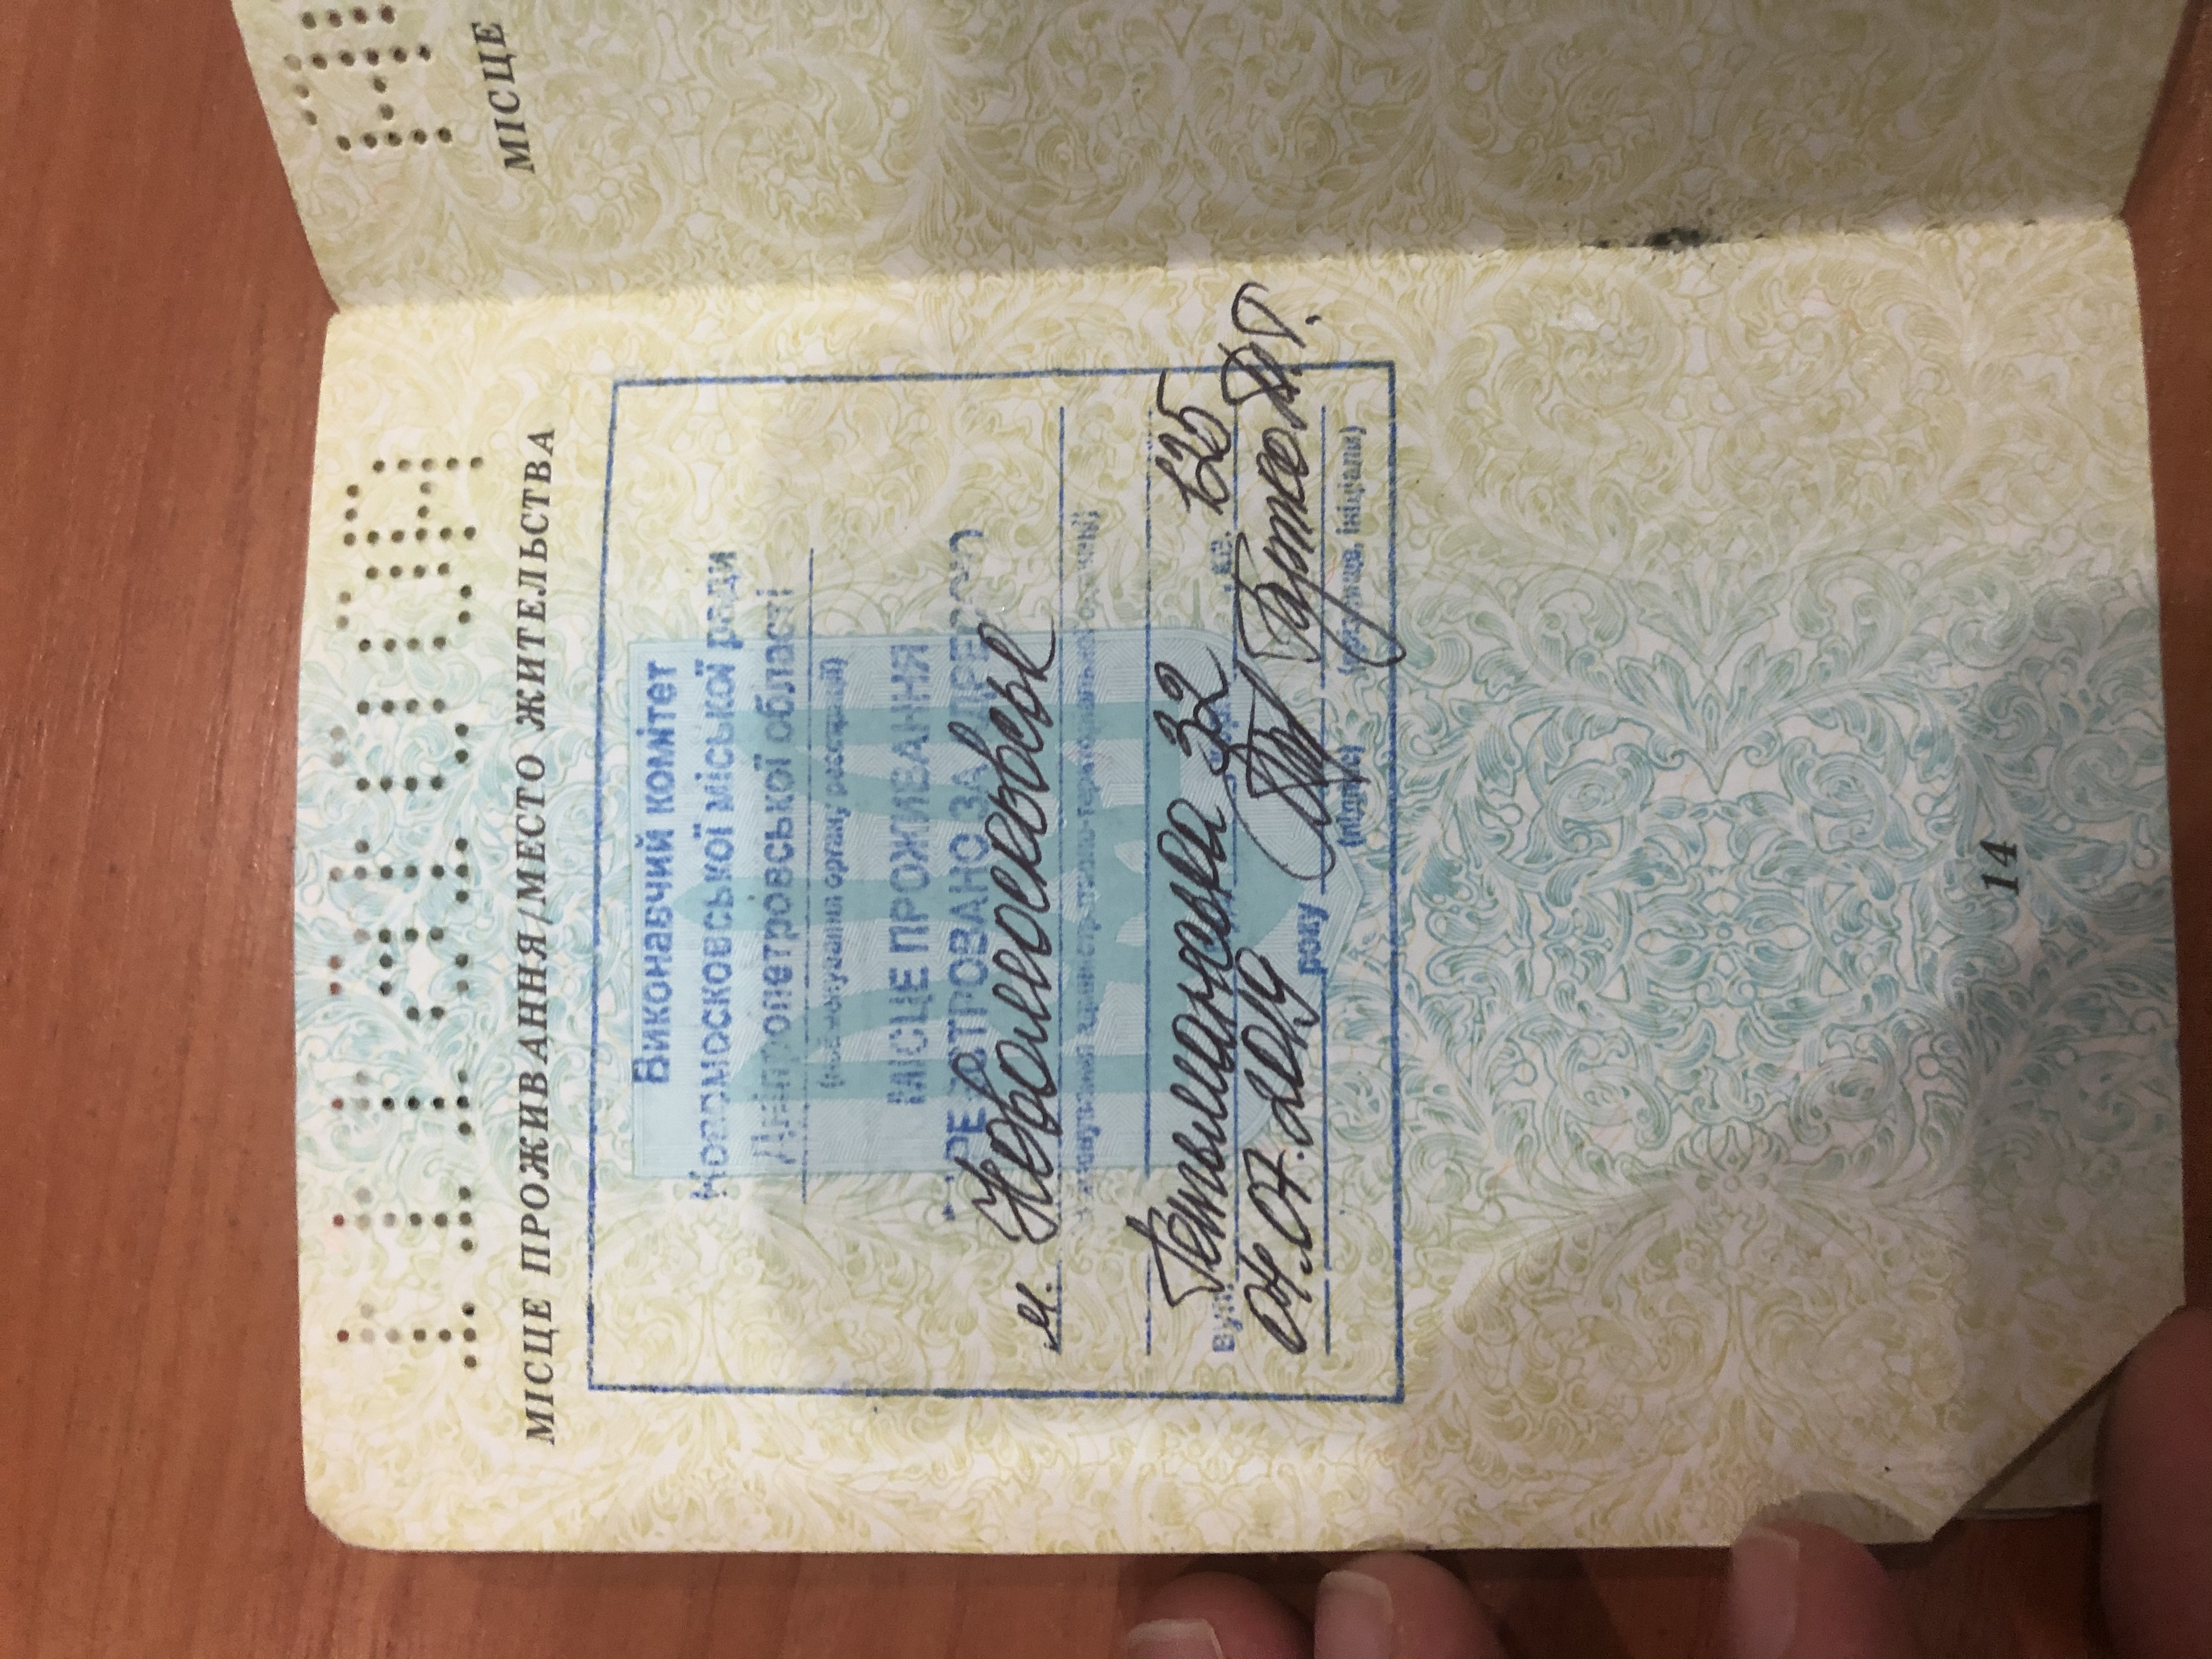 МІСЦЕ ПРОЖИВАННЯ/МЕСТО ЖИТЕЛЬСТВА
Виконавчий комітет
Новомосковської міської ради
Дніпропетровської області
(найменування органу реєстрації)
МІСЦЕ ПРОЖИВАННЯ
ЗАРЕЄСТРОВАНО ЗА АДРЕСОЮ
м. Новомосковськ
(найменування адміністративно-територіальної одиниці)
вул. Гетьманська 32 , кв. 125
04.07.2019 року
(підпис) (прізвище, ініціали)
14
МІСЦЕ